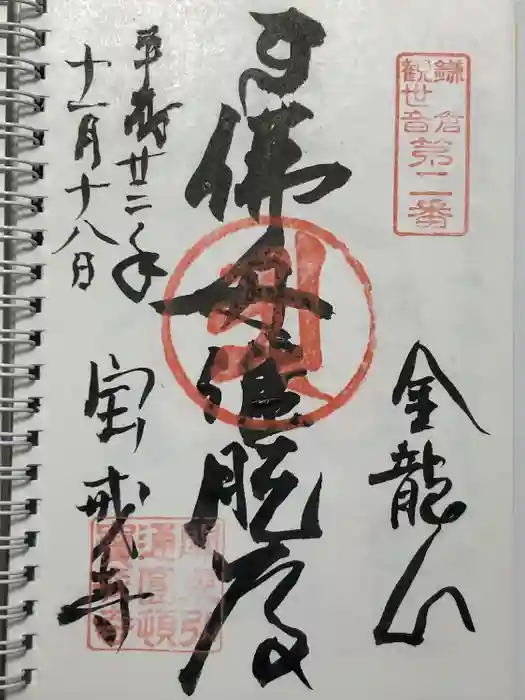 鎌倉
観世音
第二番
金龍山
佛母准胝尊
平成廿二年
十一月十八日
宝戒寺